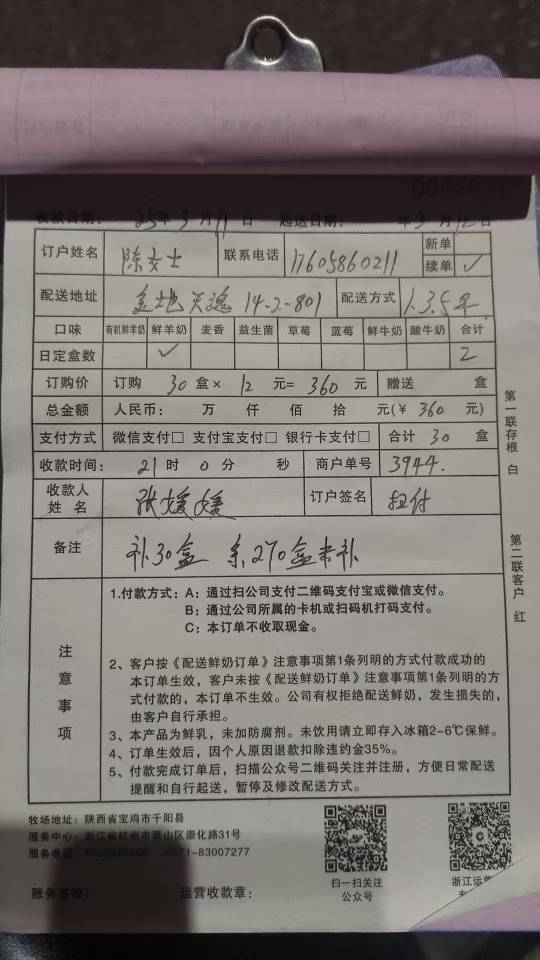 收款日期： 25年 3 月 11 日 起送日期： 年 3 月 12 日
订户姓名 陈女士 联系电话 17605860211 新单
续单 ✓
配送地址 金地天逸 14-2-801 配送方式 1.3.5早
口味 有机鲜羊奶 鲜羊奶 麦香 益生菌 草莓 蓝莓 鲜牛奶 酸牛奶 合计
日定盒数 ✓ 2
订购价 订购 30 盒× 12 元= 360 元 赠送 盒
总金额 人民币： 万 仟 佰 拾 元(￥ 360 元)
支付方式 微信支付□ 支付宝支付□ 银行卡支付□ 合计 30 盒
收款时间： 21 时 0 分 秒 商户单号 3944.
收款人姓名 张媛媛 订户签名 扭付
备注 补30盒 余270盒未补
第一联存根 白
第二联客户 红
注意事项
1.付款方式：A：通过扫公司支付二维码支付宝或微信支付。
B：通过公司所属的卡机或扫码机打码支付。
C：本订单不收取现金。
2、客户按《配送鲜奶订单》注意事项第1条列明的方式付款成功的
本订单生效，客户未按《配送鲜奶订单》注意事项第1条列明的方
式付款的，本订单不生效。公司有权拒绝配送鲜奶，发生损失的，
由客户自行承担。
3、本产品为鲜乳，未加防腐剂。未饮用请立即存入冰箱2-6℃保鲜。
4、订单生效后，因个人原因退款扣除违约金35%。
5、付款完成订单后，扫描公众号二维码关注并注册，方便日常配送
提醒和自行起送，暂停及修改配送方式。
牧场地址：陕西省宝鸡市千阳县
服务中心：浙江省杭州市萧山区崇化路31号
服务电话： 0571-83007277
扫一扫关注
公众号
浙江运营
账务签收： 运营收款章：